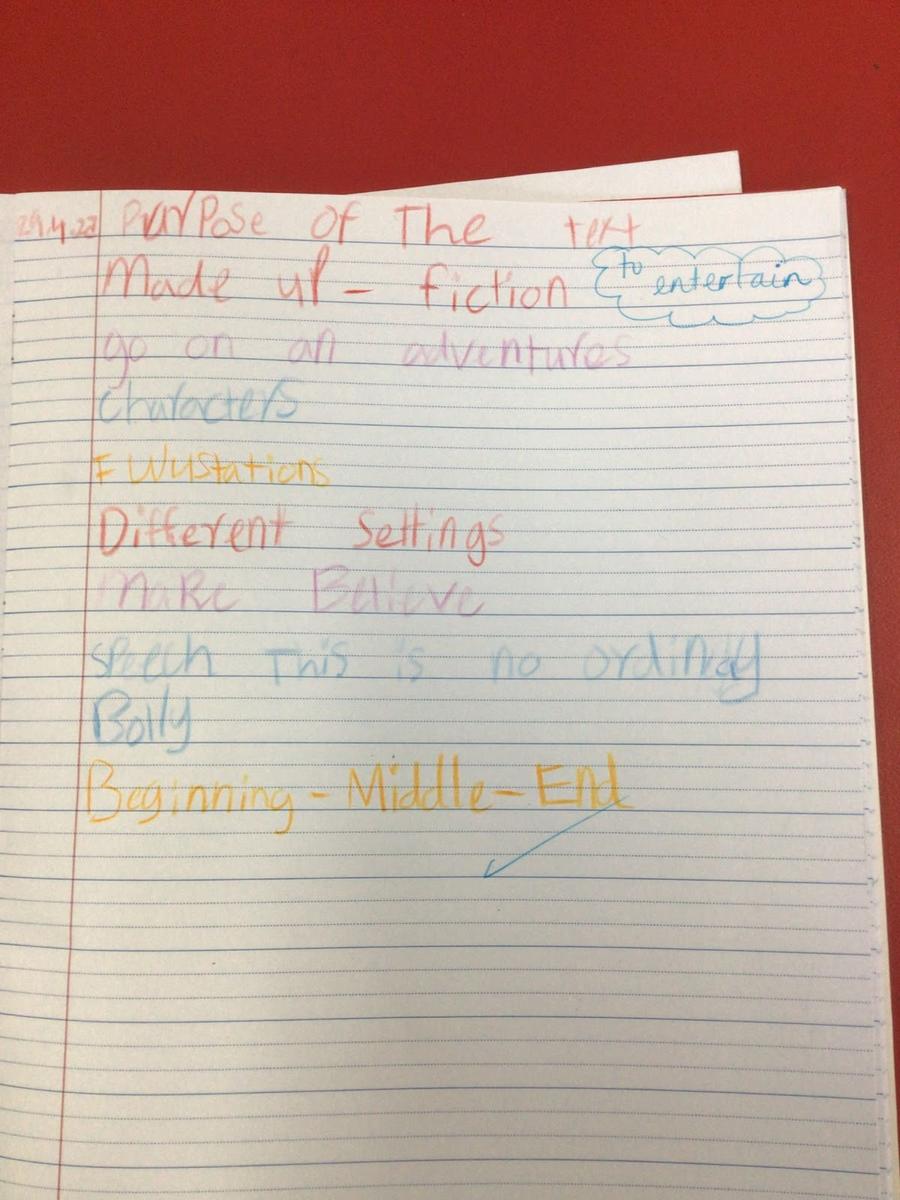 29.4.22 Purpose of The text
Made up - fiction
to entertain
go on an adventures
Characters
Different Settings
Make Believe
speech This is no ordinay
Bolly
Beginning - Middle - End